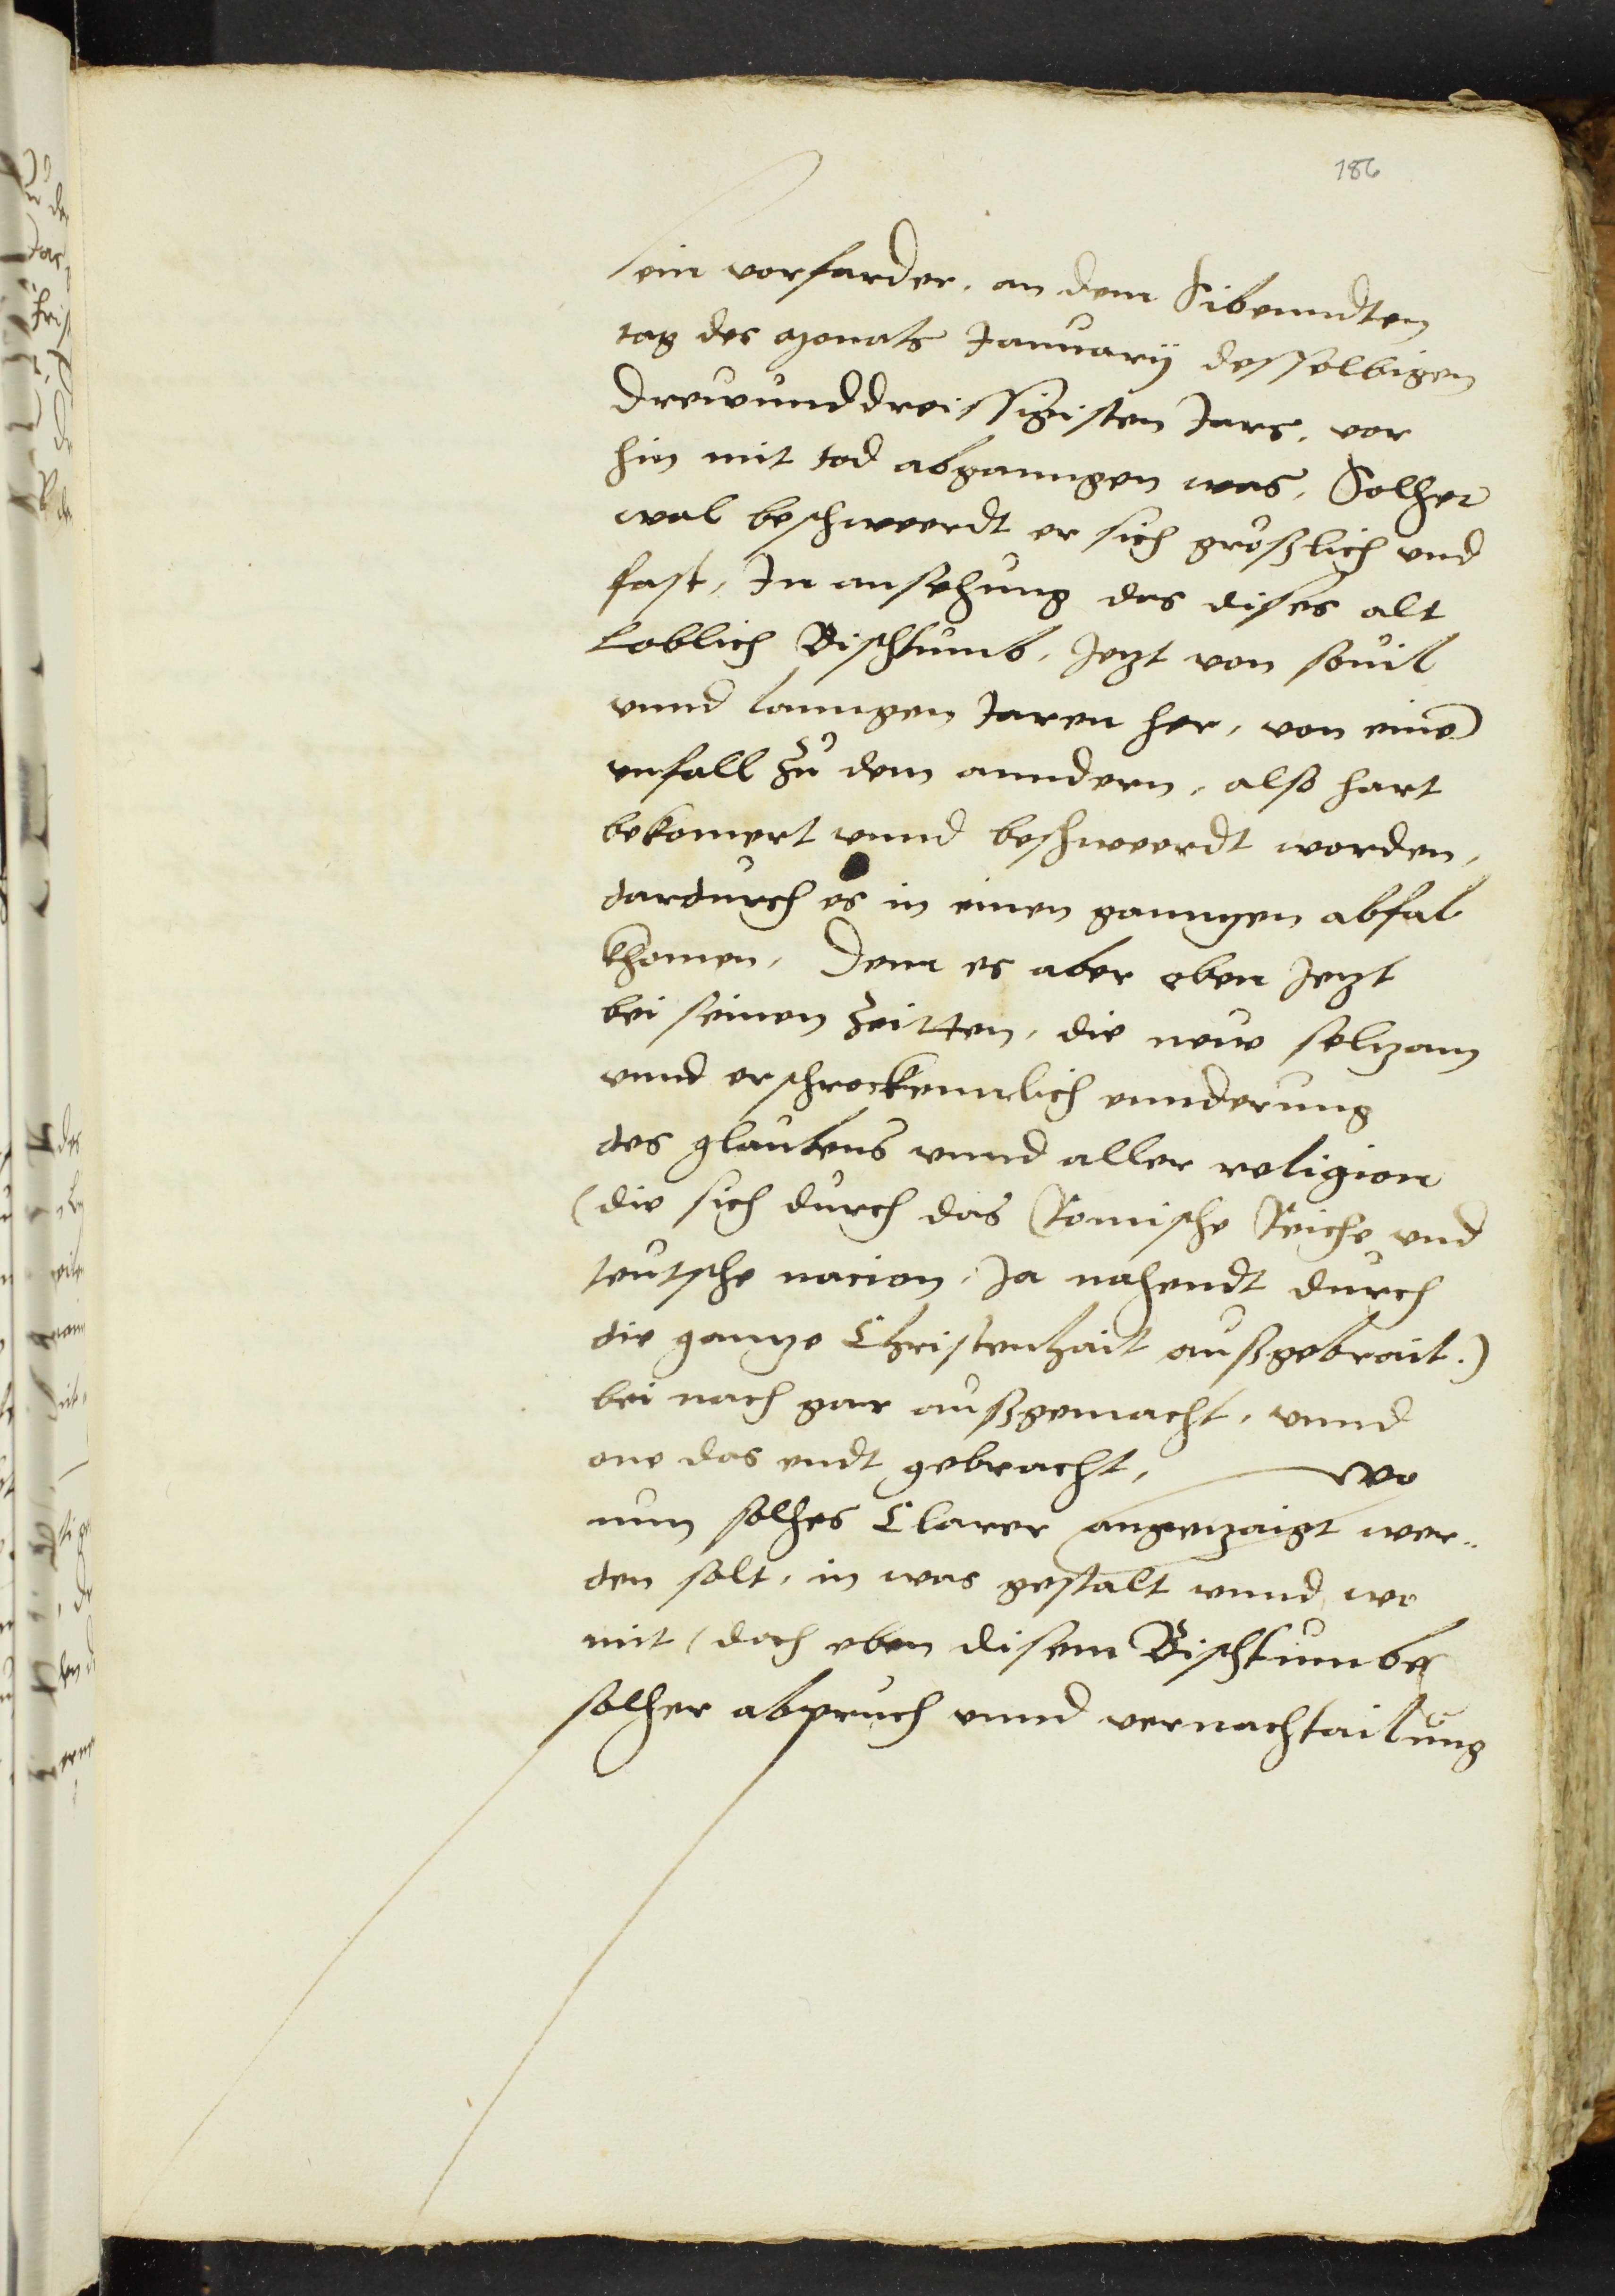 186
sein vorfarder, an dem Sibenndten
tag des monats January desselbigen
Drewunddreissigisten Jars, vor
hin mit tod abganngen was, Solher
wal beschweerdt er sich größlich und
fast, In ansehung das dises alt
Loblich Bischtumb, Jetzt von souil
vnnd lanngen Jaren her, von einē
vnfall zů dem anndern, also hart
bekomert vnnd beschweerdt worden,
dardurch es in einen ganngen abfal
khomen, Dem es aber eben Jetzt
bei seinen zeitten, die new seltzam
vnnd erschrockennlich ennderung
des glaubens vnnd aller religion
(die sich durch das Romische Reiche vnd
teutsche nacion, Ja nahendt durch
die gantze Christenhait außgebrait.)
bei nach gar außgemacht, vnnd
one das endt gebracht, Wo
nun solhes Clarer angezaigt wer„
den solt, in was gestalt vnnd wo
mit (doch eben disem Bischtumbe)
solher abpruch vnnd vernachtailung